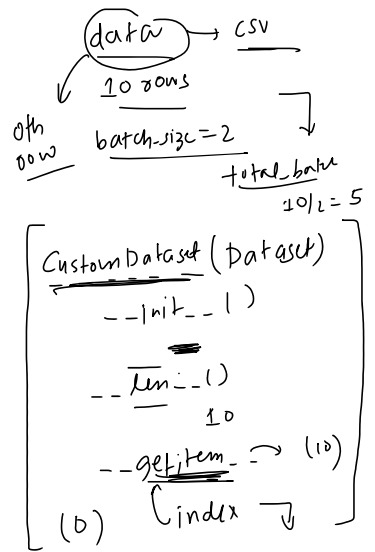 data → CSV
10 rows
0th
row
batch_size = 2
total_batch
10/2 = 5
CustomDataset (Dataset)
__init__ ()
__len__ ()
10
__getitem__ → (10)
(0) index